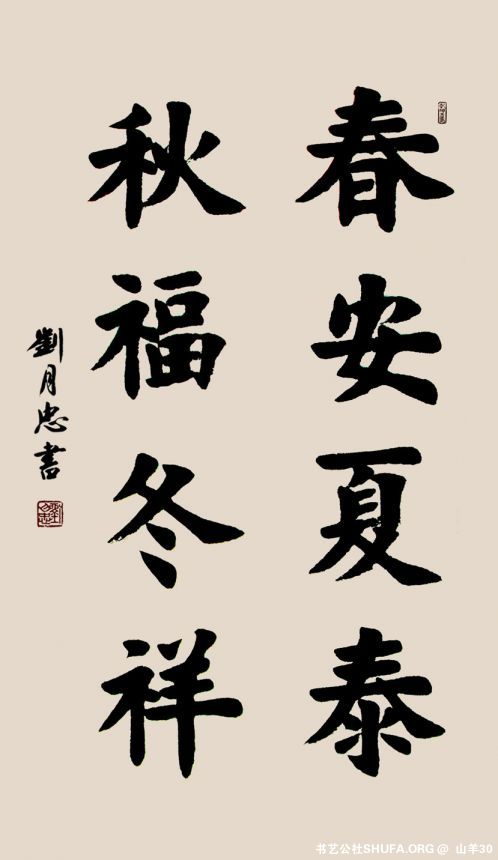 春安夏泰
秋福冬祥
劉月忠書
书艺公社SHUFA.ORG @ 山羊30